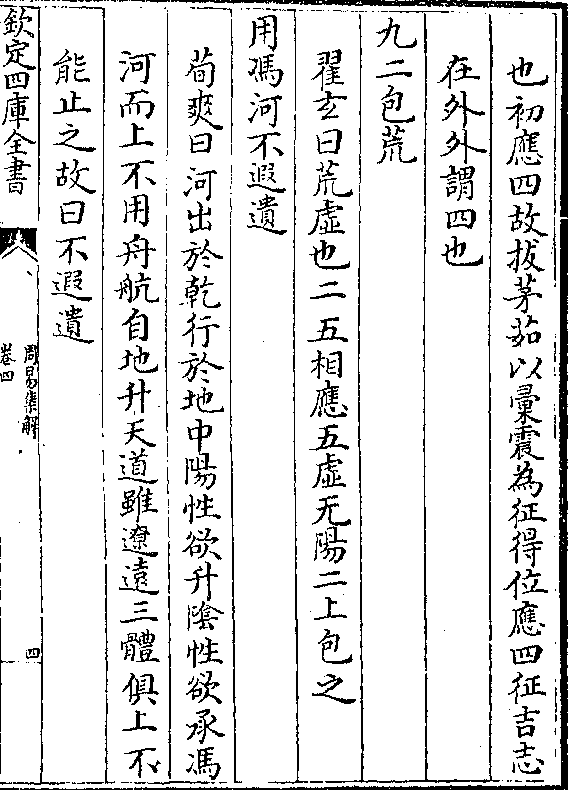 也初應四故拔茅茹以彚震為征得位應四征吉志
在外外謂四也
九二包荒
翟玄曰荒虛也二五相應五虛无陽二上包之
用馮河不遐遺
荀爽曰河出於乾行於地中陽性欲升陰性欲承馮
河而上不用舟航自地升天道雖遼遠三體俱上不
能止之故曰不遐遺
欽定四庫全書
周易集解
卷四
四